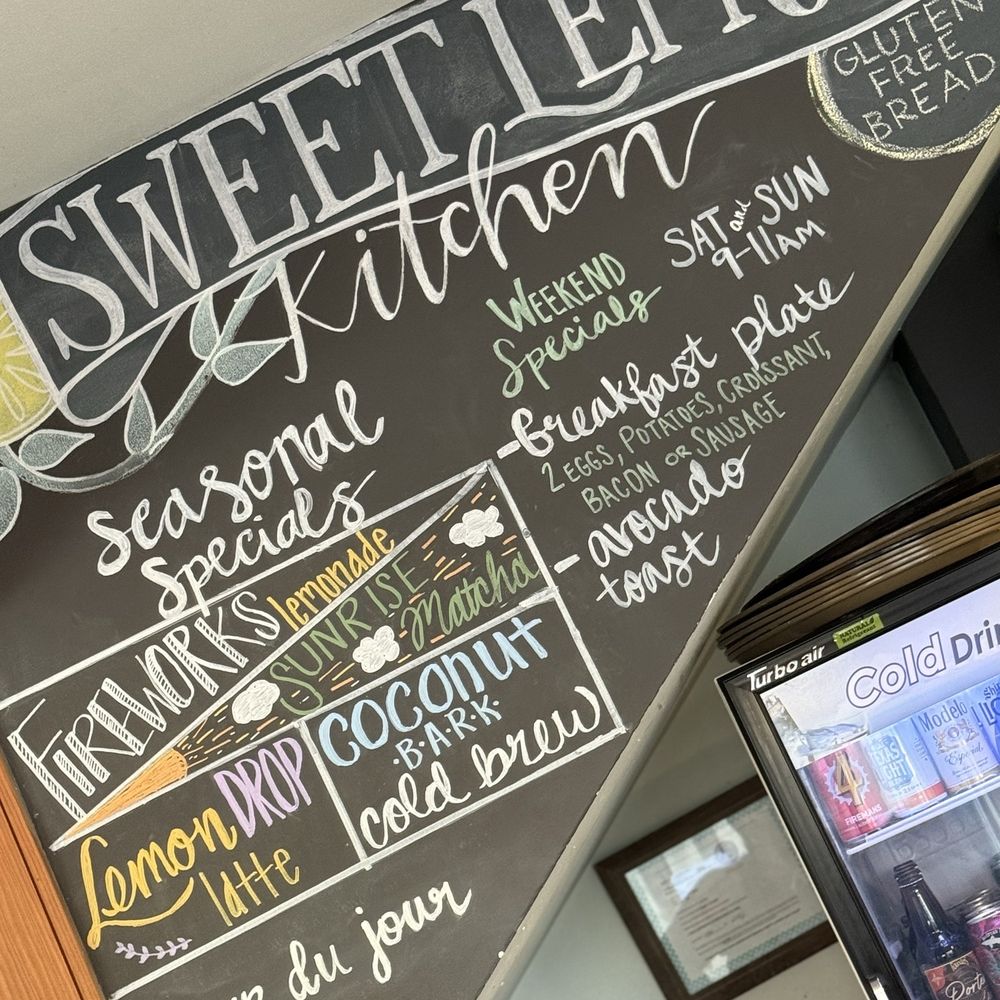 SWEET
Kitchen
GLUTEN
FREE
BREAD
SAT and SUN
9-11AM
WEEKEND
Specials
-breakfast plate
2 EGGS, POTATOES, CROISSANT,
BACON OR SAUSAGE
-avocado
toast
seasonal
specials
FIREWORKS lemonade
SUNRISE
Matcha
COCONUT
B·A·R·K·
cold brew
Lemon DROP
latte
du jour
NATURAL
Refrigerant
Turbo air
Cold Drin
Modelo
Especial
4
FIREMANS
LIGHT